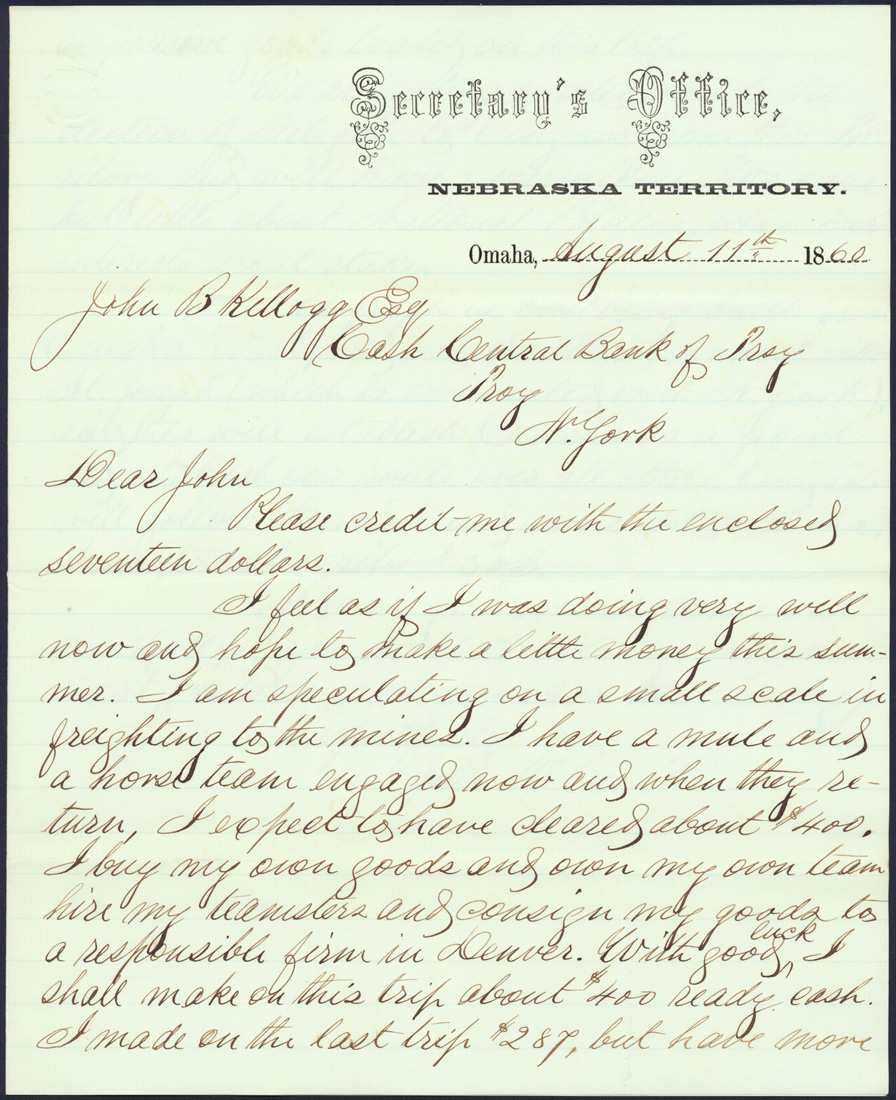 Secretary's Office,
NEBRASKA TERRITORY.
Omaha, August 11th 1860
John B Kellogg Esq
Cash Central Bank of Troy
Troy
N. York
Dear John
Please credit me with the enclosed
seventeen dollars.
I feel as if I was doing very well
now and hope to make a little money this sum-
mer. I am speculating on a small scale in
freighting to the mines. I have a mule and
a horse team engaged now and when they re-
turn, I expect to have cleared about $400.
I buy my own goods and own my own team
hire my teamsters and consign my goods to
a responsible firm in Denver. With good luck, I
shall make on this trip about $400 ready cash.
I made on the last trip $287, but have more